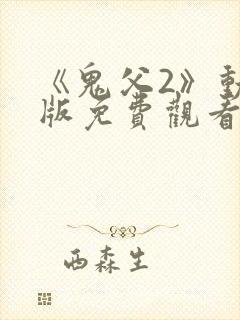 《鬼父2》動
版免費觀看
西森生